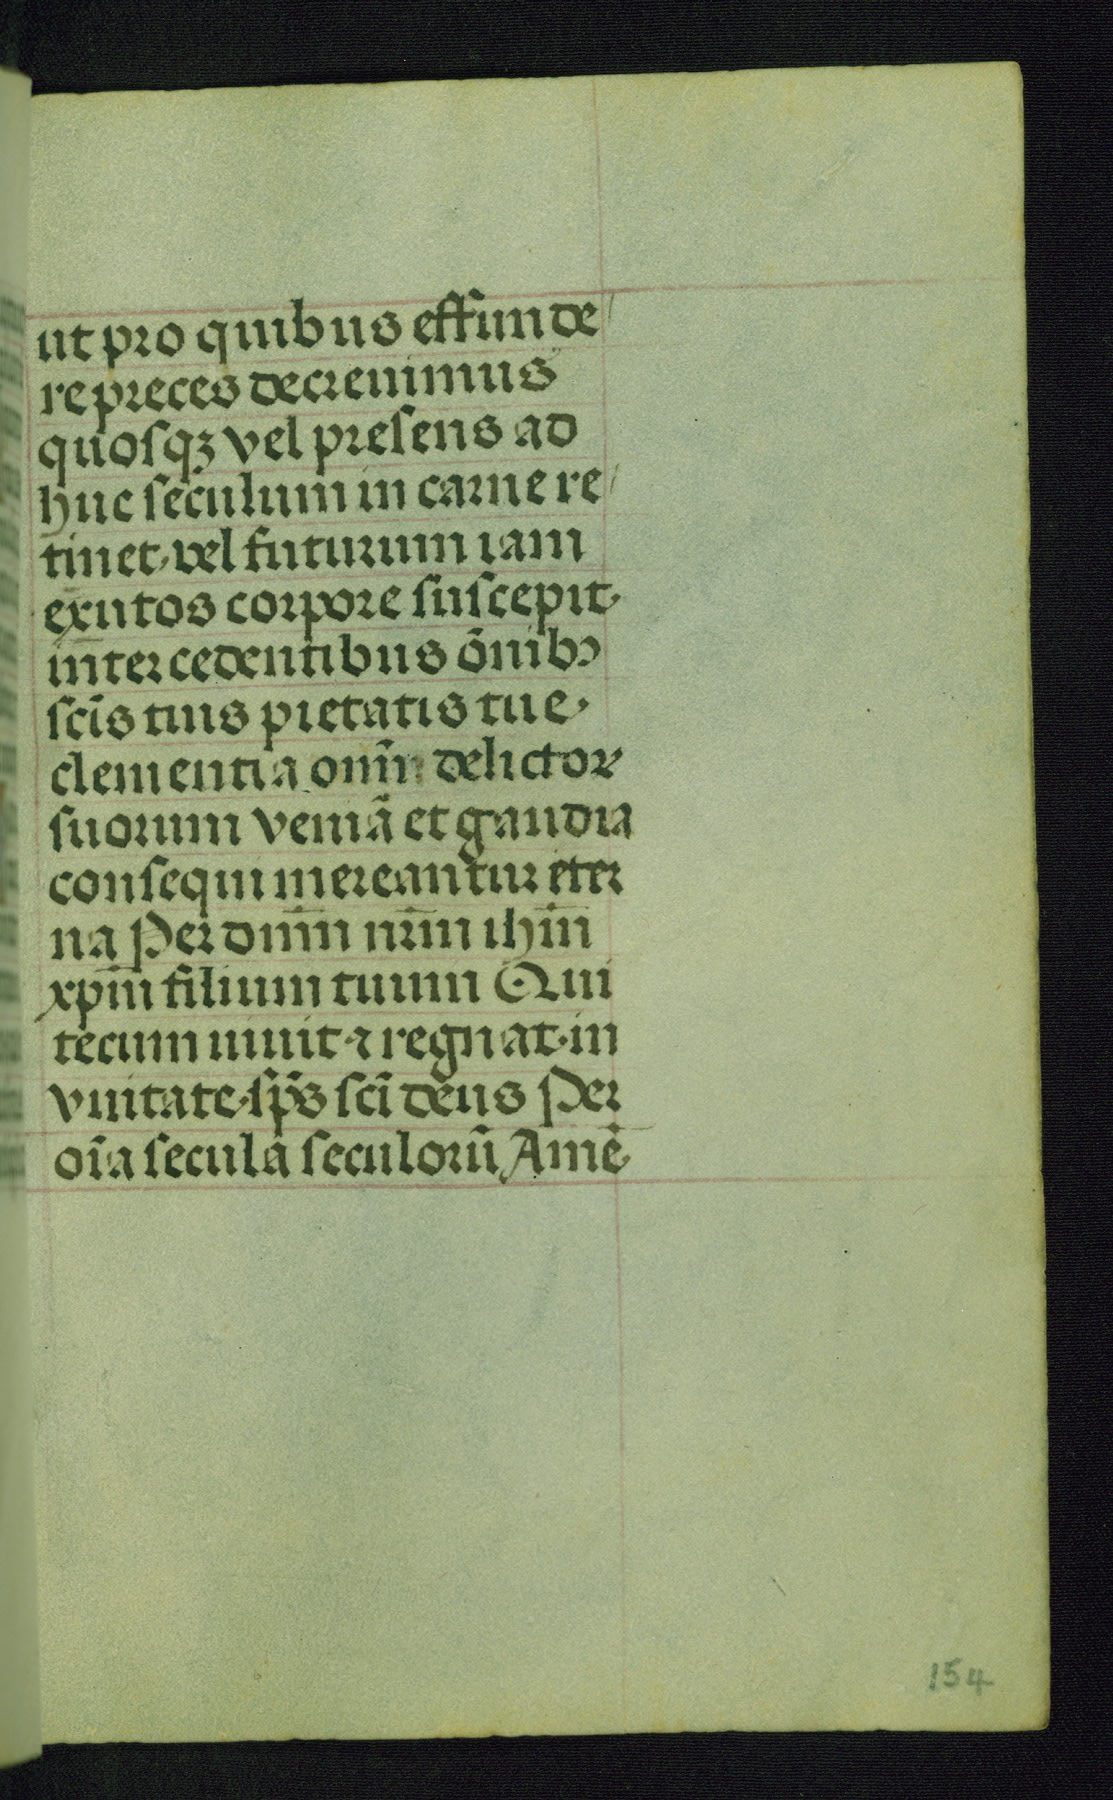 ut pro quibus effunde
re preces decreuimus
quosqꝫ vel presens ad
huc seculum in carne re
tinet, vel futurum iam
exutos corpore suscepit.
intercedentibus õnibꝯ
scĩs tuis pietatis tue.
clementia om̃ delictoꝝ
suorum veniã et gaudia
consequi mereantur eter
na Per dnm̃ nrm̃ ihm̃
xpm̃ filium tuum Qui
tecum uiuit ⁊ regnat in
vnitate sp̃s scĩ deus Per
oĩa secula seculorũ Amẽ
154